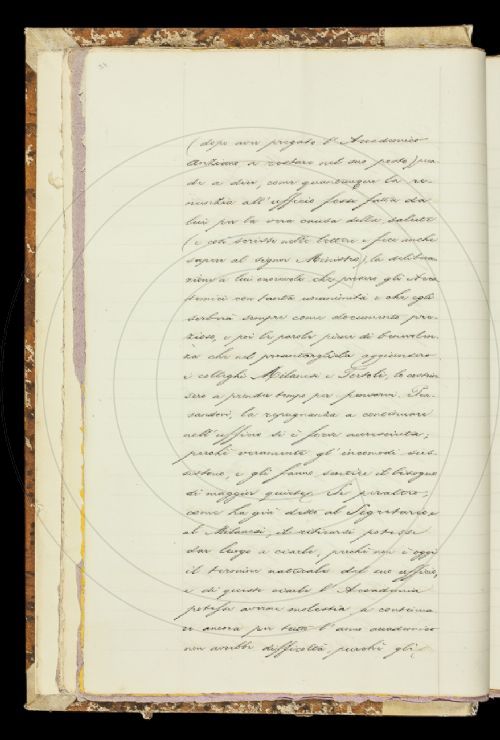 (dopo aver pregato l'Accademico
Anziano a restare nel suo posto) pren-
de a dire, come quantunque la re-
nunzia all'ufficio fosse fatta da
lui per la vera causa della salute
(e così scrisse nelle lettere e fece anche
sapere al signor Ministro), la delibera-
zione a lui onorevole che presero gli Acca-
demici con tanta unanimità e che egli
serberà sempre come documento pre-
zioso, e poi le parole piene di benevolen-
za che nel presentargliela aggiunsero
i colleghi Milanesi e Tortoli, lo costrin-
sero a prender tempo per pensarvi. Pen-
sandovi, la repugnanza a continuare
nell'ufficio si è forse accresciuta;
perchè veramente gl'incomodi sus-
sistono, e gli fanno sentire il bisogno
di maggior quiete. Se peraltro,
come ha già detto al Segretario e
al Milanesi, il ritirarsi potesse
dar luogo a ciarle, perchè non è oggi
il termine naturale del suo ufficio,
e di queste ciarle l'Accademia
potesse averne molestia, a continua-
re ancora per tutto l'anno accademico
non avrebbe difficoltà, purchè gli